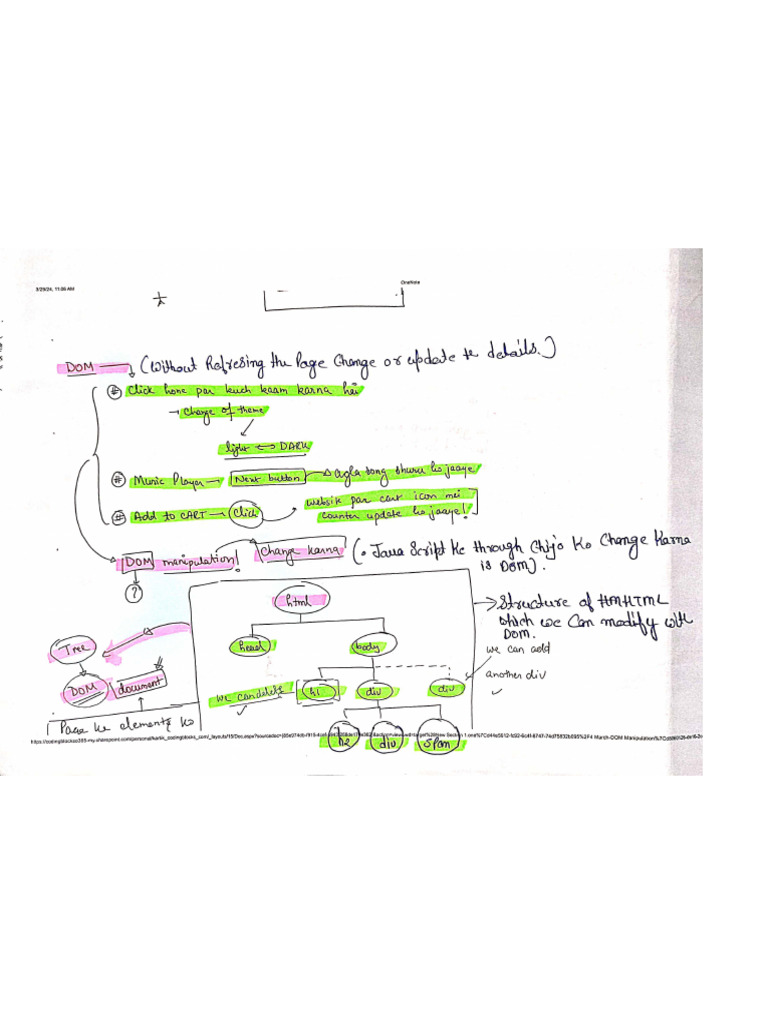 3/29/24, 11:06 AM
OneNote
DOM → (Without Refresing the Page Change or update te details.)
# Click hone par kuch kaam karna hei
→ change of theme
light ↔ DARK
# Music Player → Next button → agla song shuru ho jaaye
# Add to CART → Click → website par cart icon mei
counter update ho jaaye!
DOM manipulation! change karna (• Java Script Ke through Chijo Ko Change Karna
is DOM).
?
html
→ Structure of HMHTML
which we Can modify with
DOM.
Tree
head
body
we can add
another div
DOM document
we can delete
h1
div
div
Page ke elements ko
h2
div
span